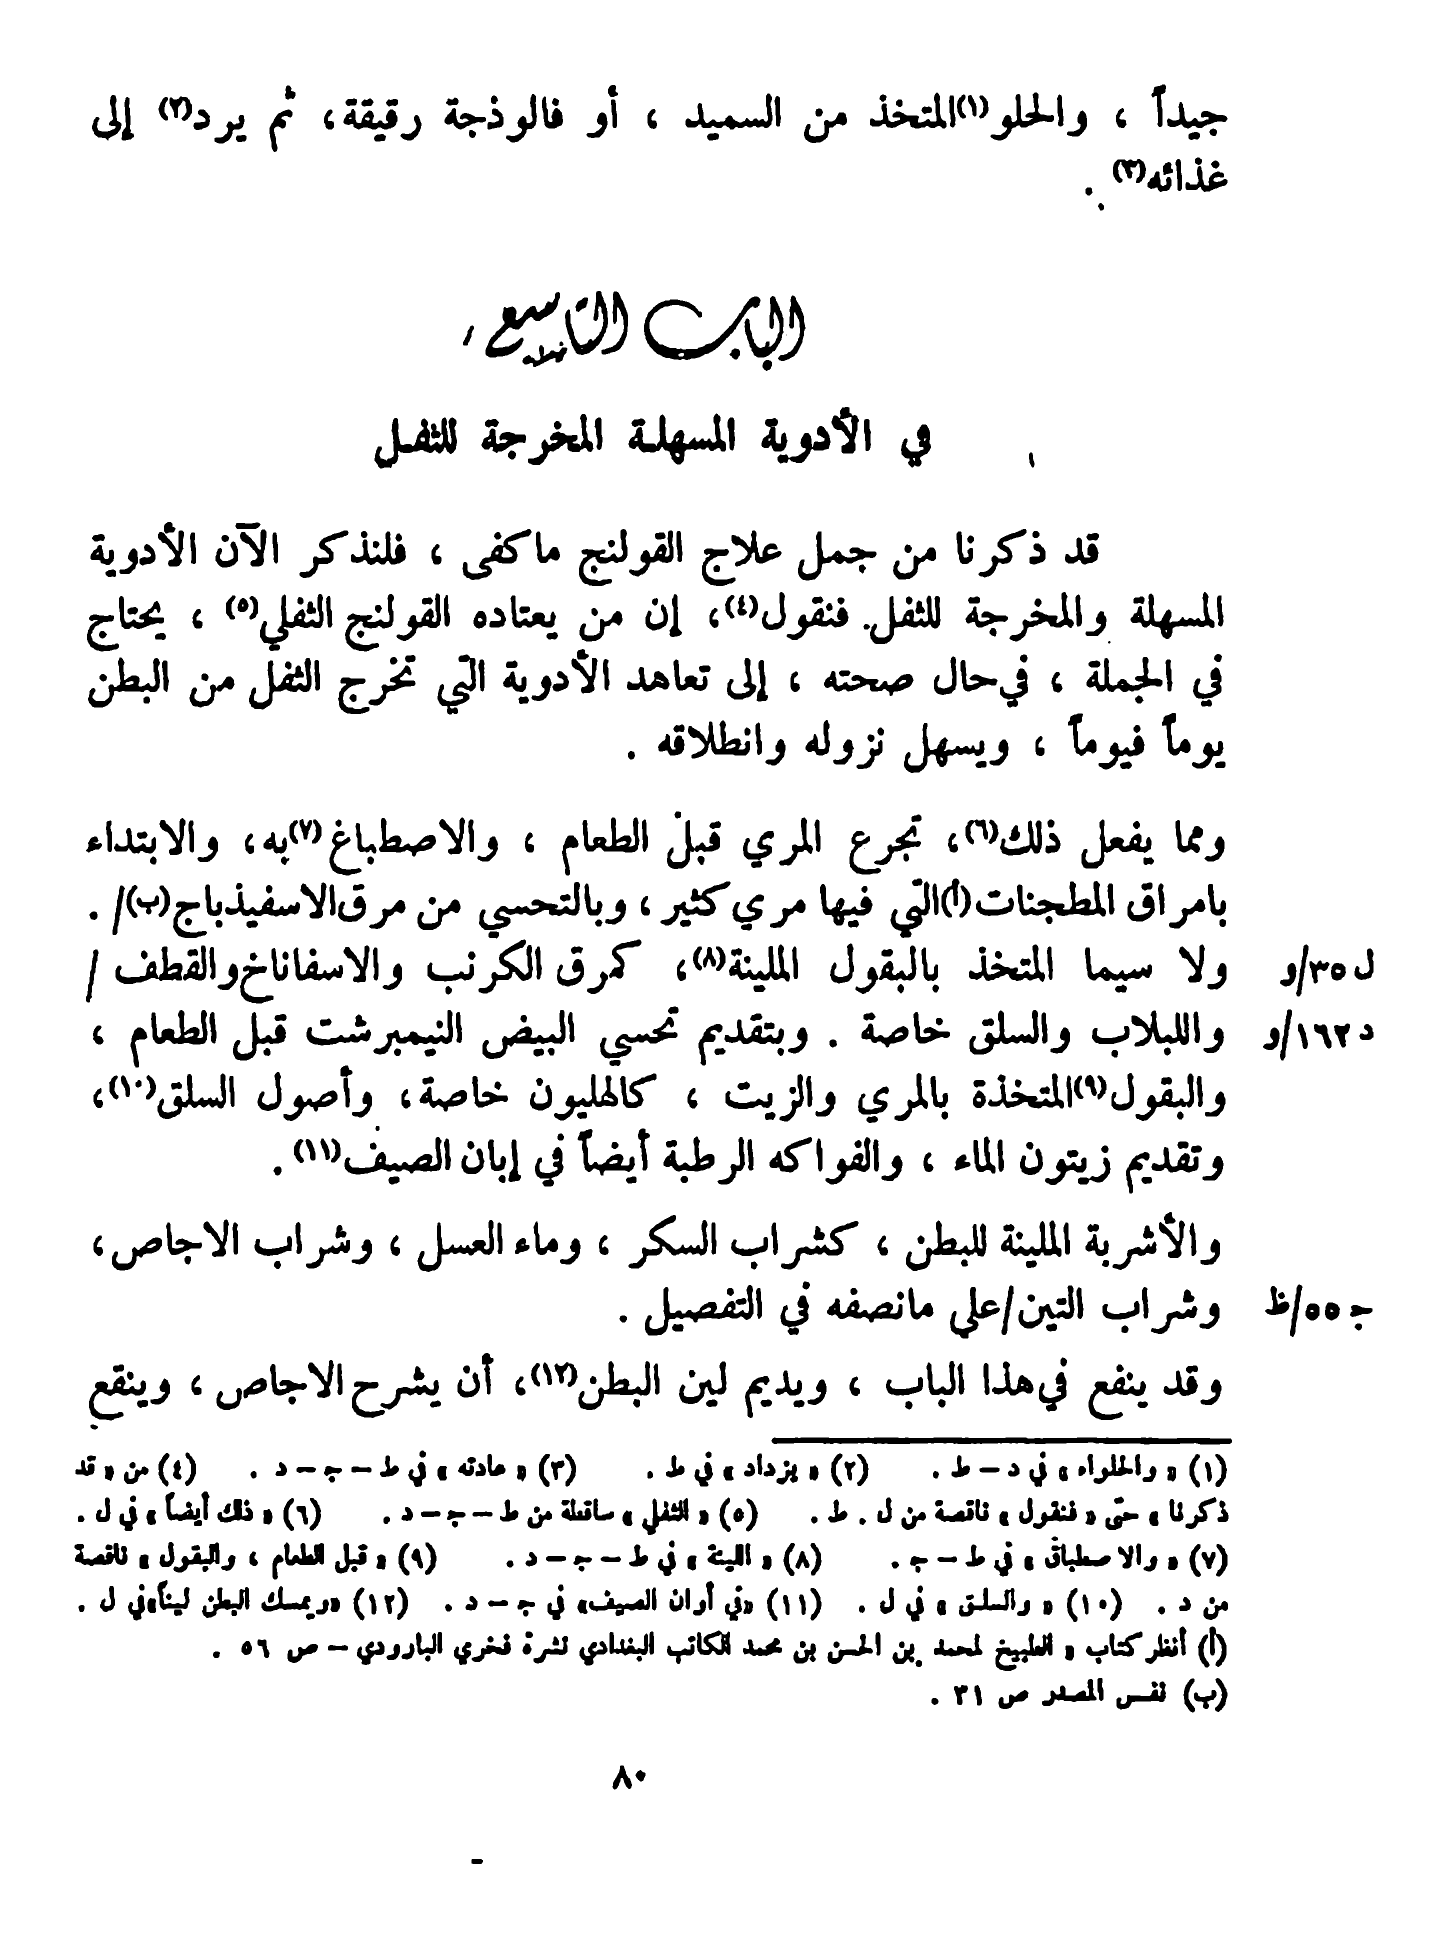 جيداً ، والحلو(١)المتخذ من السميد ، أو فالوذجة رقيقة، ثم يرد(٢) إلى
غذائه(٣) .
الباب التاسع
في الأدوية المسهلة المخرجة للثفل
قد ذكرنا من جمل علاج القولنج ماكفى ، فلنذكر الآن الأدوية
المسهلة والمخرجة للثفل. فنقول(٤)، إن من يعتاده القولنج الثفلي(٥) ، يحتاج
في الجملة ، في حال صحته ، إلى تعاهد الأدوية التي تخرج الثفل من البطن
يوماً فيوماً ، ويسهل نزوله وانطلاقه .
ومما يفعل ذلك(٦)، تجرع المري قبل الطعام ، والاصطباغ(٧)به، والابتداء
بامراق المطجنات(أ)التي فيها مري كثير ، وبالتحسي من مرق الاسفيذباج(ب)/ .
ل ٣٥/و ولا سيما المتخذ بالبقول الملينة(٨)، كمرق الكرنب والاسفاناخ والقطف /
د ١٦٢/و واللبلاب والسلق خاصة . وبتقديم تحسي البيض النيمبرشت قبل الطعام ،
والبقول(٩)المتخذة بالمري والزيت ، كالهليون خاصة، وأصول السلق(١٠)،
وتقديم زيتون الماء ، والفواكه الرطبة أيضاً في إبان الصيف(١١) .
والأشربة الملينة للبطن ، كشراب السكر ، وماء العسل ، وشراب الاجاص،
ج ٥٥/ظ وشراب التين/علي مانصفه في التفصيل .
وقد ينفع في هذا الباب ، ويديم لين البطن(١٢)، أن يشرح الاجاص ، وينقع
(١) « والحلواء » في د – ط . (٢) « يزداد » في ط . (٣) « عادته » في ط – ج – د . (٤) من « قد
ذكرنا » حتى « فنقول » ناقصة من ل . ط . (٥) « الثفلي » ساقطة من ط – ج – د . (٦) « ذلك أيضاً » في ل .
(٧) « والاصطباق » في ط – ج . (٨) « اللينة » في ط – ج – د . (٩) « قبل الطعام ، والبقول » ناقصة
من د . (١٠) « والسلق » في ل . (١١) «في أوان الصيف» في ج – د . (١٢) «ويمسك البطن ليناً»في ل .
(أ) أنظر كتاب « الطبيخ لمحمد بن الحسن بن محمد الكاتب البغدادي نشرة فخري البارودي – ص ٥٦ .
(ب) نفس المصدر ص ٣١ .
٨٠